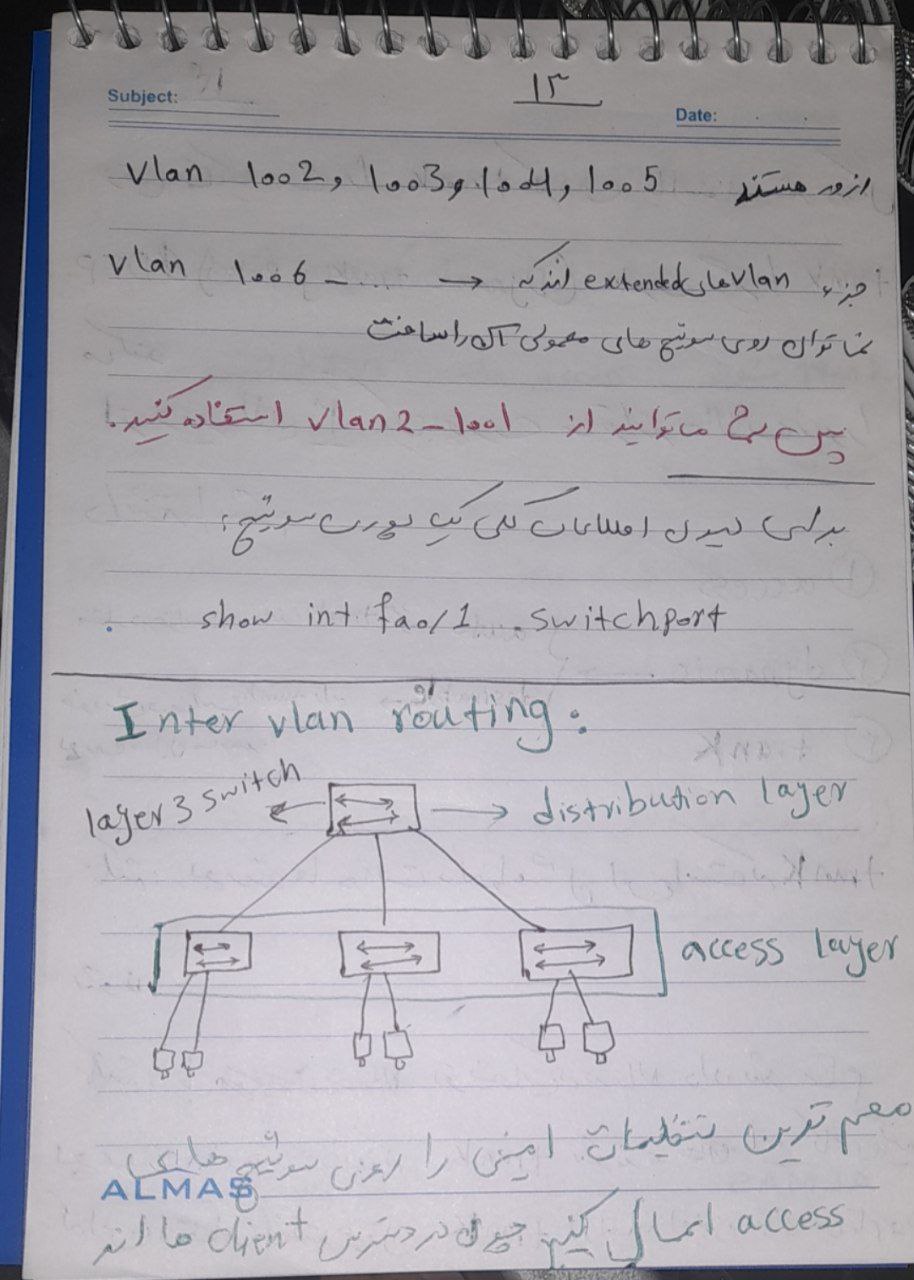 Subject:
۱۳
Date:
vlan 1002, 1003, 1004, 1005 رزور هستند
vlan 1006 - ..... → جزء vlan های extended اند که
نمی‌توان روی سوئیچ های معمولی آن را ساخت
پس شما میتوانید از vlan 2 - 1001 استفاده کنید.
برای دیدن اطلاعات کلی یک پورت سوئیچ:
show int fa0/1 switchport
Inter vlan routing:
layer 3 switch
distribution layer
access layer
مهم ترین تنظیمات امنیتی را روی سوئیچ های
ALMAS
access اعمال کنیم چون در دسترس client ها اند